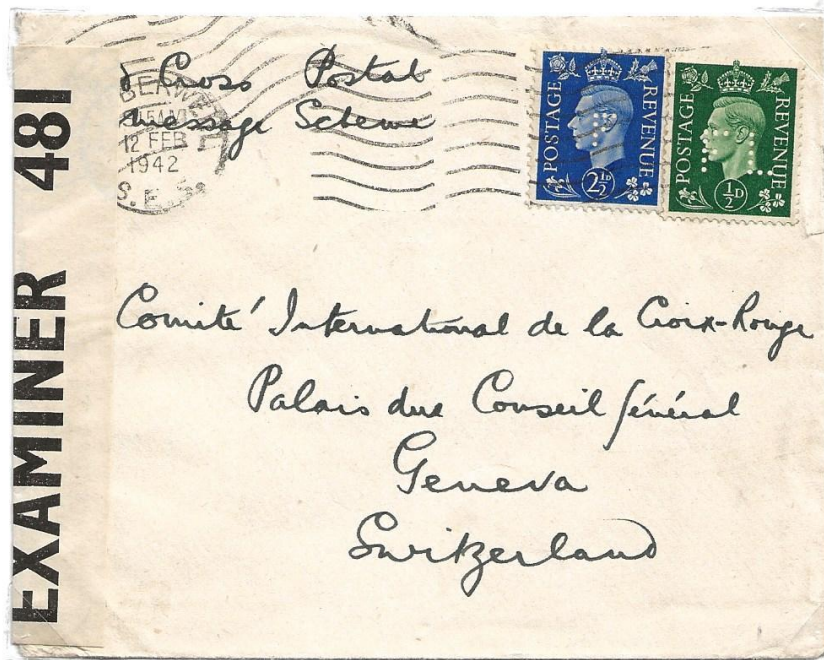 Cross Postal
message Scheme
12 FEB
1942
S.E.
POSTAGE REVENUE
2½D
POSTAGE REVENUE
½D
EXAMINER 481
Comité International de la Croix-Rouge
Palais due Conseil Général
Geneva
Switzerland